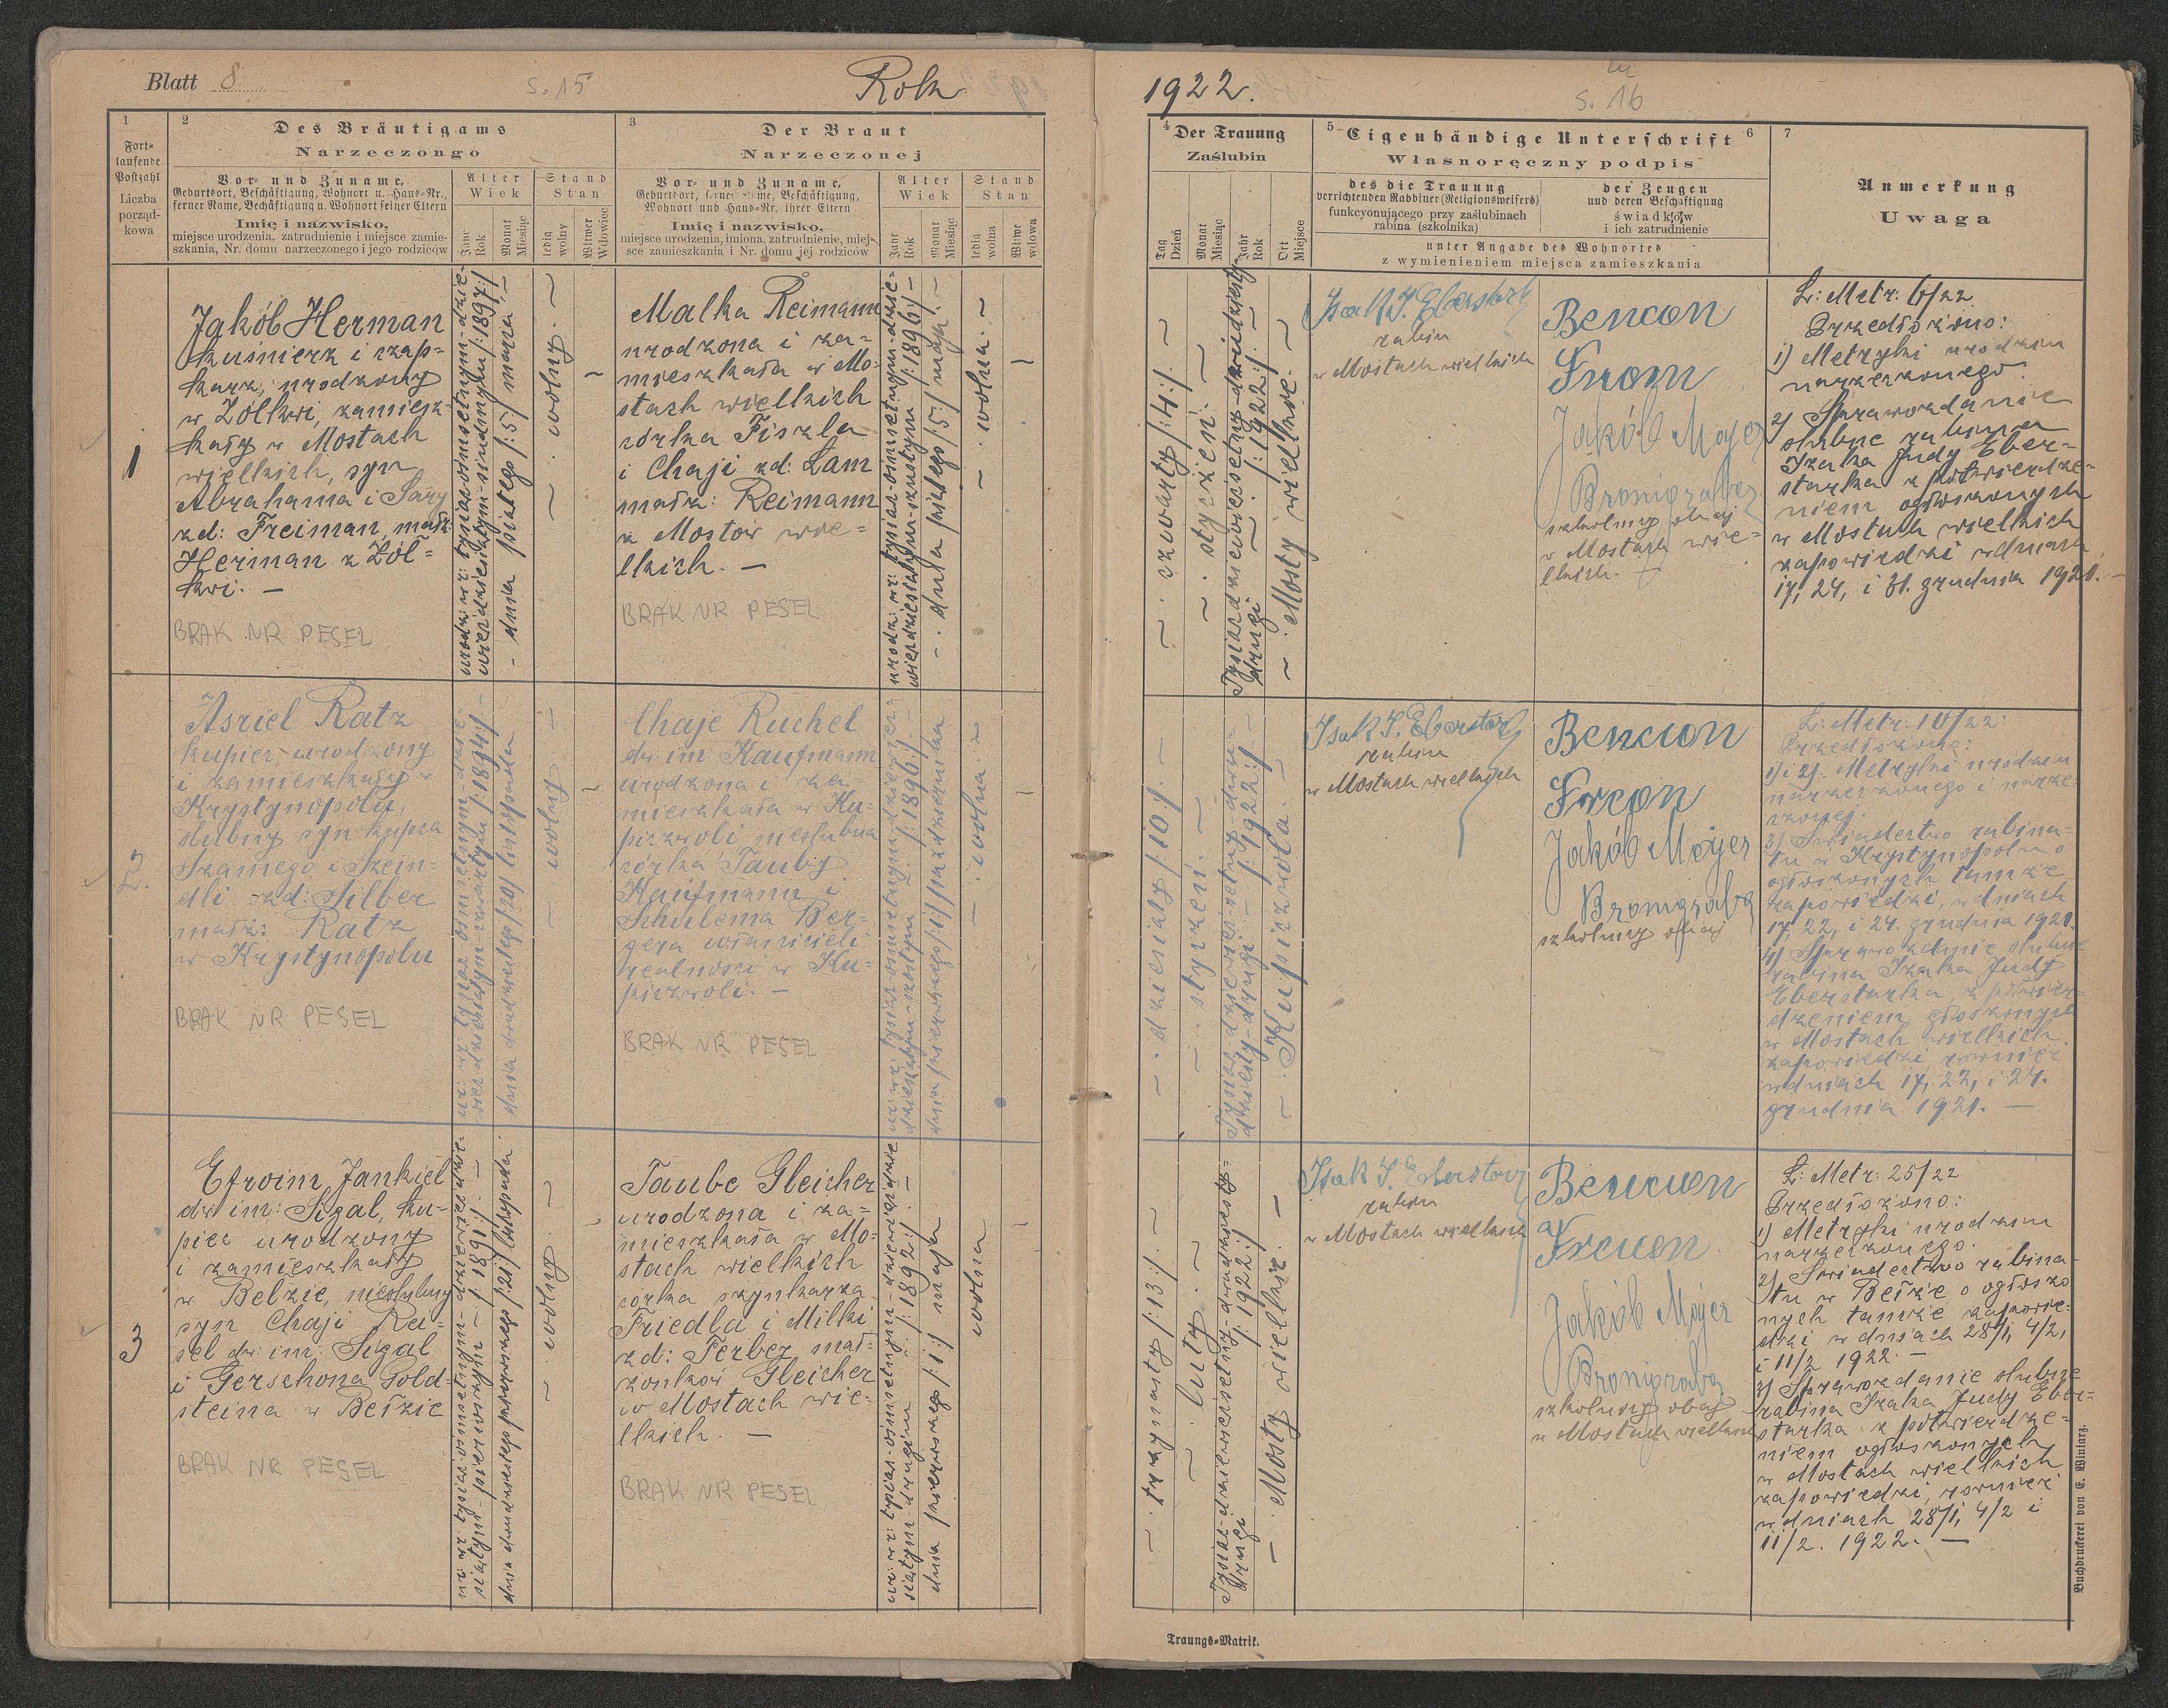 Blatt 8
s. 15
Rok
1922.
s. 16
1
2
3
4
5
6
7
Fort-
laufende
Postzahl
Liczba
porząd-
kowa
Des Bräutigams
Narzeczongo
Vor- und Zuname,
Geburtsort, Beschäftigung, Wohnort u. Haus-Nr.,
ferner Name, Beschäftigung u. Wohnort seiner Eltern
Imię i nazwisko,
miejsce urodzenia, zatrudnienie i miejsce zamie-
szkania, Nr. domu narzeczonego i jego rodziców
Alter
Wiek
Jahr
Rok
Monat
Miesiąc
Stand
Stan
ledig
wolny
Witwer
Wdowiec
Der Braut
Narzeczonej
Vor- und Zuname,
Geburtsort, ferner Name, Beschäftigung,
Wohnort und Haus-Nr. ihrer Eltern
Imię i nazwisko,
miejsce urodzenia, imiona, zatrudnienie, miej-
sce zamieszkania i Nr. domu jej rodziców
Alter
Wiek
Jahr
Rok
Monat
Miesiąc
Stand
Stan
ledig
wolna
Witwe
wdowa
Der Trauung
Zaślubin
Tag
Dzień
Monat
Miesiąc
Jahr
Rok
Ort
Miejsce
Eigenhändige Unterschrift
Własnoręczny podpis
des die Trauung
verrichtenden Rabbiner (Religionsweisers)
funkcyonującego przy zaślubinach
rabina (szkolnika)
der Zeugen
und deren Beschäftigung
świadków
i ich zatrudnienie
unter Angabe des Wohnortes
z wymienieniem miejsca zamieszkania
Anmerkung
Uwaga
1
Jakób Herman
kuśnierz i czap-
karz, urodzony
w Żółkwi, zamiesz-
kały w Mostach
wielkich, syn
Abrahama i Sary
zd: Freiman, małż:
Herman z Żół-
kwi. —
BRAK NR PESEL
urodz: w r: tysiąc ośmsetnym-dzie-
więćdziesiątym siódmym /:1897:/
- dnia piątego /:5/ marca, -
wolny
Malka Reimann
urodzona i za-
mieszkała w Mo-
stach wielkich
córka Fiszla
i Chaji zd: Lam
małż: Reimann
z Mostów wie-
lkich. —
BRAK NR PESEL
urodz: w r: tysiąc-ośmsetnym-dzie-
więćdziesiątym-szóstym /:1896:/ -
- dnia piątego /:5:/ maja. -
wolna
czwarty /:4:/.
styczeń.
Tysiąc dziewięćsetny dwudziesty
drugi /:1922:/.
Mosty wielkie.
Isak J. Eberstark
rabin
w Mostach wielkich
Bencion
From
Jakób Majer
Bronigraber
szkolnicy obaj
w Mostach wie-
lkich.
L: Metr: 6/22
Przedłożono:
1) Metryki urodzin
narzeczonego.
2) Sprawozdanie
ślubne rabina
Izaka Judy Eber-
starka z potwierdze-
niem ogłoszonych
w Mostach wielkich
zapowiedzi w dniach
17, 24, i 31. grudnia 1921. -
2.
Asriel Katz
kupiec, urodzony
i zamieszkały w
Krystynopolu,
ślubny syn kupca
Szamego i Szein-
dli zd: Silber
małż: Katz
w Krystynopolu
BRAK NR PESEL
ur: w r: tysiąc ośmsetnym-dzie-
więćdziesiątym czwartym /:1894:/ -
dnia dwudziestego /:20/ listopada
wolny
Chaje Ruchel
dw. im: Kaufmann
urodzona i za-
mieszkała w Ku-
piczwoli nieślubna
córka Tauby
Kaufmann i
Schulema Ber-
gera właścicieli
realności w Ku-
piczwoli. —
BRAK NR PESEL
dnia pierwszego /:1/ października
wolna
dziesiąty /:10:/.
styczeń.
Tysiąc dziewięćsetny-dwu-
dziesty-drugi - /:1922:/
Kupiczwola.
Isak J. Eberstark
rabin
w Mostach wielkich
Bencion
From
Jakób Majer
Bronigraber
szkolnicy obaj
L: Metr: 10/22:
Przedłożono:
1) i 2). Metryki urodzin
narzeczonego i narze-
czonej.
3) Świadectwo rabina-
tu w Krystynopolu o
ogłoszonych tamże
zapowiedzi, w dniach
17, 22, i 24. grudnia 1921.
4) Sprawozdanie ślubne
rabina Izaka Judy
Eberstarka z potwier-
dzeniem ogłoszonych
w Mostach wielkich
zapowiedzi, również
w dniach 17, 22, i 24.
grudnia 1921. —
3
Efroim Jankiel
dw im: Sigal, ku-
piec urodzony
i zamieszkały
w Bełzie, nieślubny
syn Chaji Rei-
sel dw: im: Sigal
i Gerschona Gold-
steina w Bełzie
BRAK NR PESEL
ur: w r: tysiąc-ośmsetnym-dziewięćdzie-
siątym-pierwszym - /:1891:/. -
dnia dwudziestego pierwszego /:21:/ listopada.
wolny
Taube Gleicher
urodzona i za-
mieszkała w Mo-
stach wielkich
córka szynkarza
Friedla i Milki
zd: Ferber mał-
żonków Gleicher
w Mostach wie-
lkich. —
BRAK NR PESEL
ur: w r: tysiąc-ośmsetnym-dziewięćdzie-
siątym-drugim /:1892:/. -
dnia pierwszego /:1:/ maja
wolna
trzynasty /:13:/.
luty.
Tysiąc-dziewięćsetny-dwudziesty-
drugi /:1922:/
Mosty wielkie.
Isak J. Eberstark
rabin
w Mostach wielkich
Bencion
From
Jakób Majer
Bronigraber
szkolnicy obaj
w Mostach wielkich
L: Metr: 25/22
Przedłożono:
1) Metryki urodzin
narzeczonego.
2) Świadectwo rabina-
tu w Bełzie o ogłoszo-
nych tamże zapowie-
dzi w dniach 28/1, 4/2,
i 11/2 1922. —
3) Sprawozdanie ślubne
rabina Izaka Judy Eber-
starka z potwierdze-
niem ogłoszonych
w Mostach wielkich
zapowiedzi, również
w dniach 28/1, 4/2 i
11/2. 1922. —
Traungs-Matrik.
Buchdruckerei von E. Winiarz.